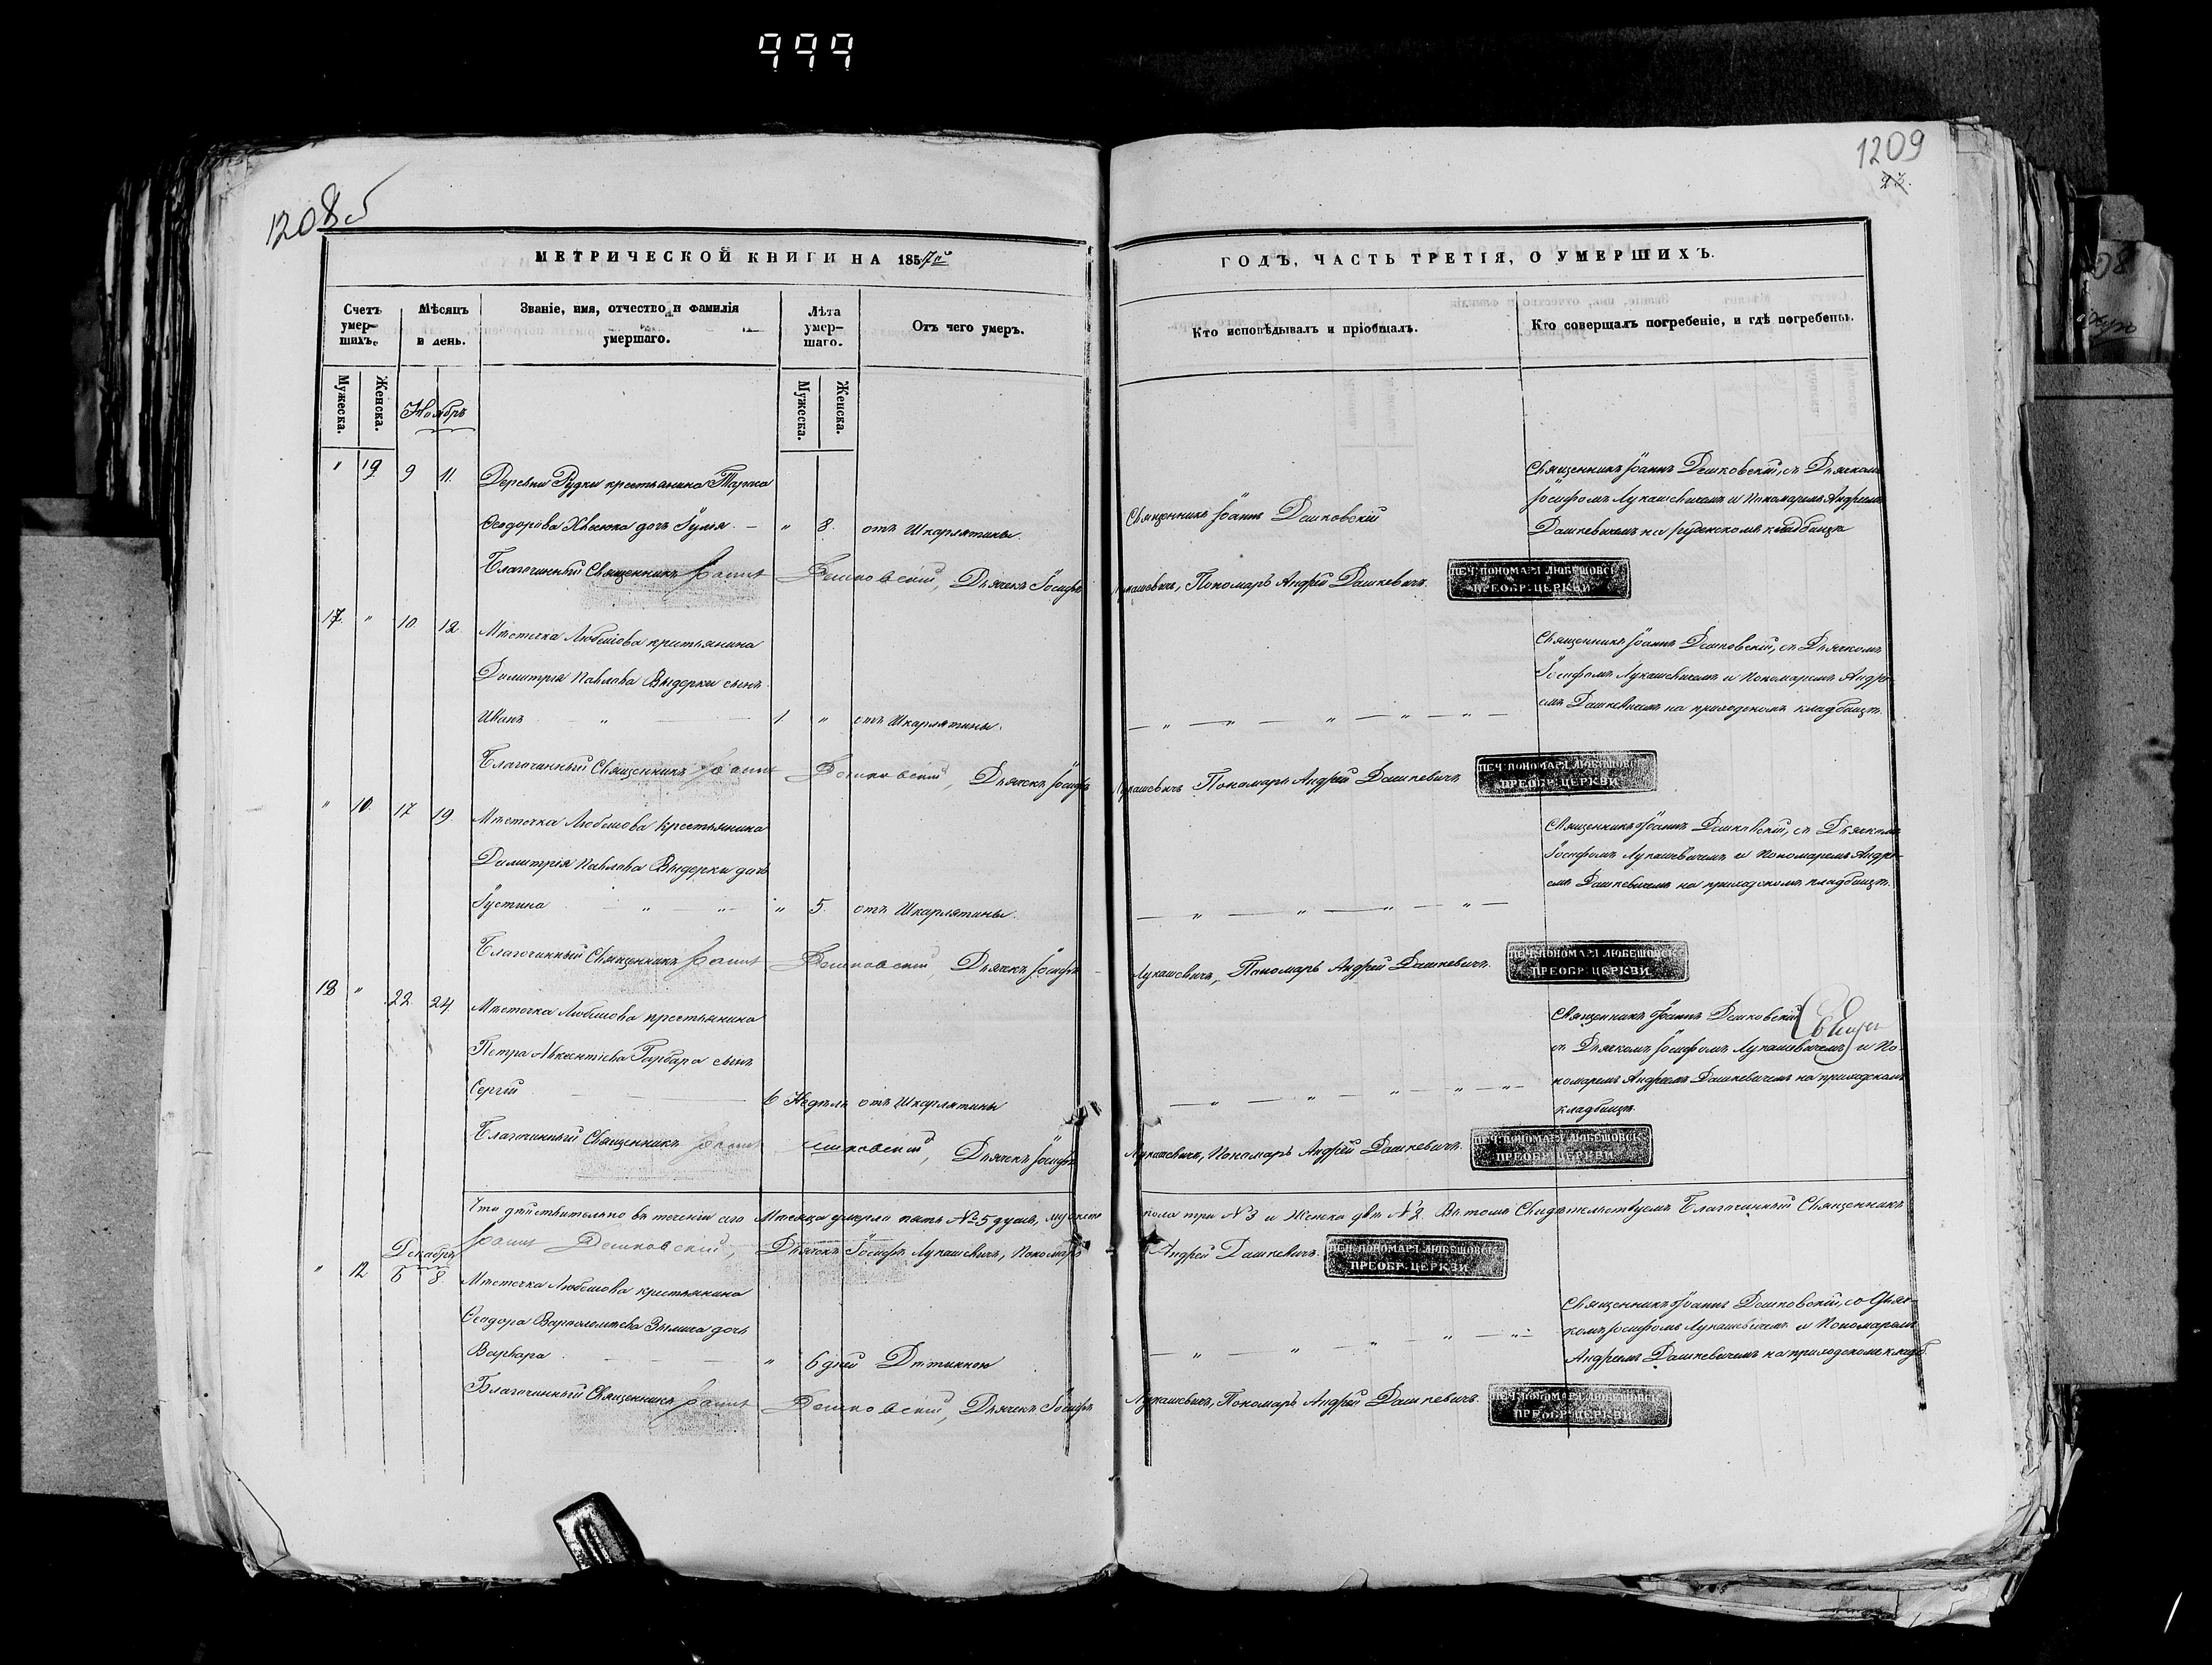 999
1208об
1209
93.
МЕТРИЧЕСКОЙ КНИГИ НА 1857й
ГОДЪ, ЧАСТЬ ТРЕТІЯ, О УМЕРШИХЪ.
Счетъ умер-шихъ.
Мѣсяцъ и день.
Званіе, имя, отчество и фамилія умершаго.
Лѣта умер-шаго.
Отъ чего умеръ.
Кто исповѣдывалъ и пріобщалъ.
Кто совершалъ погребеніе, и гдѣ погребены.
Мужеска.
Женска.
Мужеска.
Женска.
Ноябрь
19 9 11.
Деревни Рудки крестьянина Тараса
Ѳеодорова Хвесюка дочь Іулія. — " 8. отъ Шкарлятины.
Священникъ Іоаннъ Дешковскій
Священникъ Іоаннъ Дешковскій, съ Дьячкомъ
Іосифомъ Лукашевичемъ и Пономаремъ Андреемъ
Дашкевичемъ на кладбищѣ
Благочинный Священникъ Іоаннъ Дешковскій, Дьячекъ Іосифъ Лукашевичъ, Пономарь Андрей Дашкевичъ.
ПЕЧ. ПОНОМАРЯ ЛЮБЕШОВСК.
ПРЕОБР. ЦЕРКВИ
17. " 10 12.
Мѣстечка Любешова крестьянина
Димитрія Павлова Выдерки сынъ
Иванъ " 1 " отъ Шкарлятины.
Священникъ Іоаннъ Дешковскій, съ Дьячкомъ
Іосифомъ Лукашевичемъ и Пономаремъ Андре-
емъ Дашкевичемъ на приходскомъ кладбищѣ.
Благочинный Священникъ Іоаннъ Дешковскій, Дьячекъ Іосифъ Лукашевичъ Пономарь Андрей Дашкевичъ
ПЕЧ. ПОНОМАРЯ ЛЮБЕШОВСК.
ПРЕОБР. ЦЕРКВИ
" 10. 17 19.
Мѣстечка Любешова Крестьянина
Димитрія Павлова Выдерки дочь
Іустина " " " 5. отъ Шкарлятины.
Священникъ Іоаннъ Дешковскій, съ Дьячкомъ
Іосифомъ Лукашевичемъ и Пономаремъ Андре-
емъ Дашкевичемъ на приходскомъ кладбищѣ.
Благочинный Священникъ Іоаннъ Дешковскій, Дьячекъ Іосифъ Лукашевичъ, Пономарь Андрей Дашкевичъ.
ПЕЧ. ПОНОМАРЯ ЛЮБЕШОВСК.
ПРЕОБР. ЦЕРКВИ
18 " 22. 24.
Мѣстечка Любешова крестьянина
Петра Авксентіева Гарбара сынъ
Сергій 6 Недѣль отъ Шкарлятины
Священникъ Іоаннъ Дешковскій
съ Дьячкомъ Іосифомъ Лукашевичемъ и По-
номаремъ Андреемъ Дашкевичемъ на приходскомъ
кладбищѣ.
Благочинный Священникъ Іоаннъ Дешковскій, Дьячекъ Іосифъ Лукашевичъ, Пономарь Андрей Дашкевичъ.
ПЕЧ. ПОНОМАРЯ ЛЮБЕШОВСК.
ПРЕОБР. ЦЕРКВИ
Что дѣйствительно въ теченіи сего Мѣсяца умерло пять №5 душъ, мужеска пола три №3 и Женска двѣ №2. Въ томъ Свидѣтельствуемъ Благочинный Священникъ
Іоаннъ Дешковскій, Дьячекъ Іосифъ Лукашевичъ, Пономарь Андрей Дашкевичъ.
ПЕЧ. ПОНОМАРЯ ЛЮБЕШОВСК.
ПРЕОБР. ЦЕРКВИ
Декабрь
" 12 6 8.
Мѣстечка Любешова крестьянина
Ѳеодора Варѳоломѣева дочь
Варвара. " 6 дней Дѣтинною
Священникъ Іоаннъ Дешковскій, со Дьяч-
комъ Іосифомъ Лукашевичемъ и Пономаремъ
Андреемъ Дашкевичемъ на приходскомъ кладб.
Благочинный Священникъ Іоаннъ Дешковскій, Дьячекъ Іосифъ Лукашевичъ, Пономарь Андрей Дашкевичъ.
ПЕЧ. ПОНОМАРЯ ЛЮБЕШОВСК.
ПРЕОБР. ЦЕРКВИ